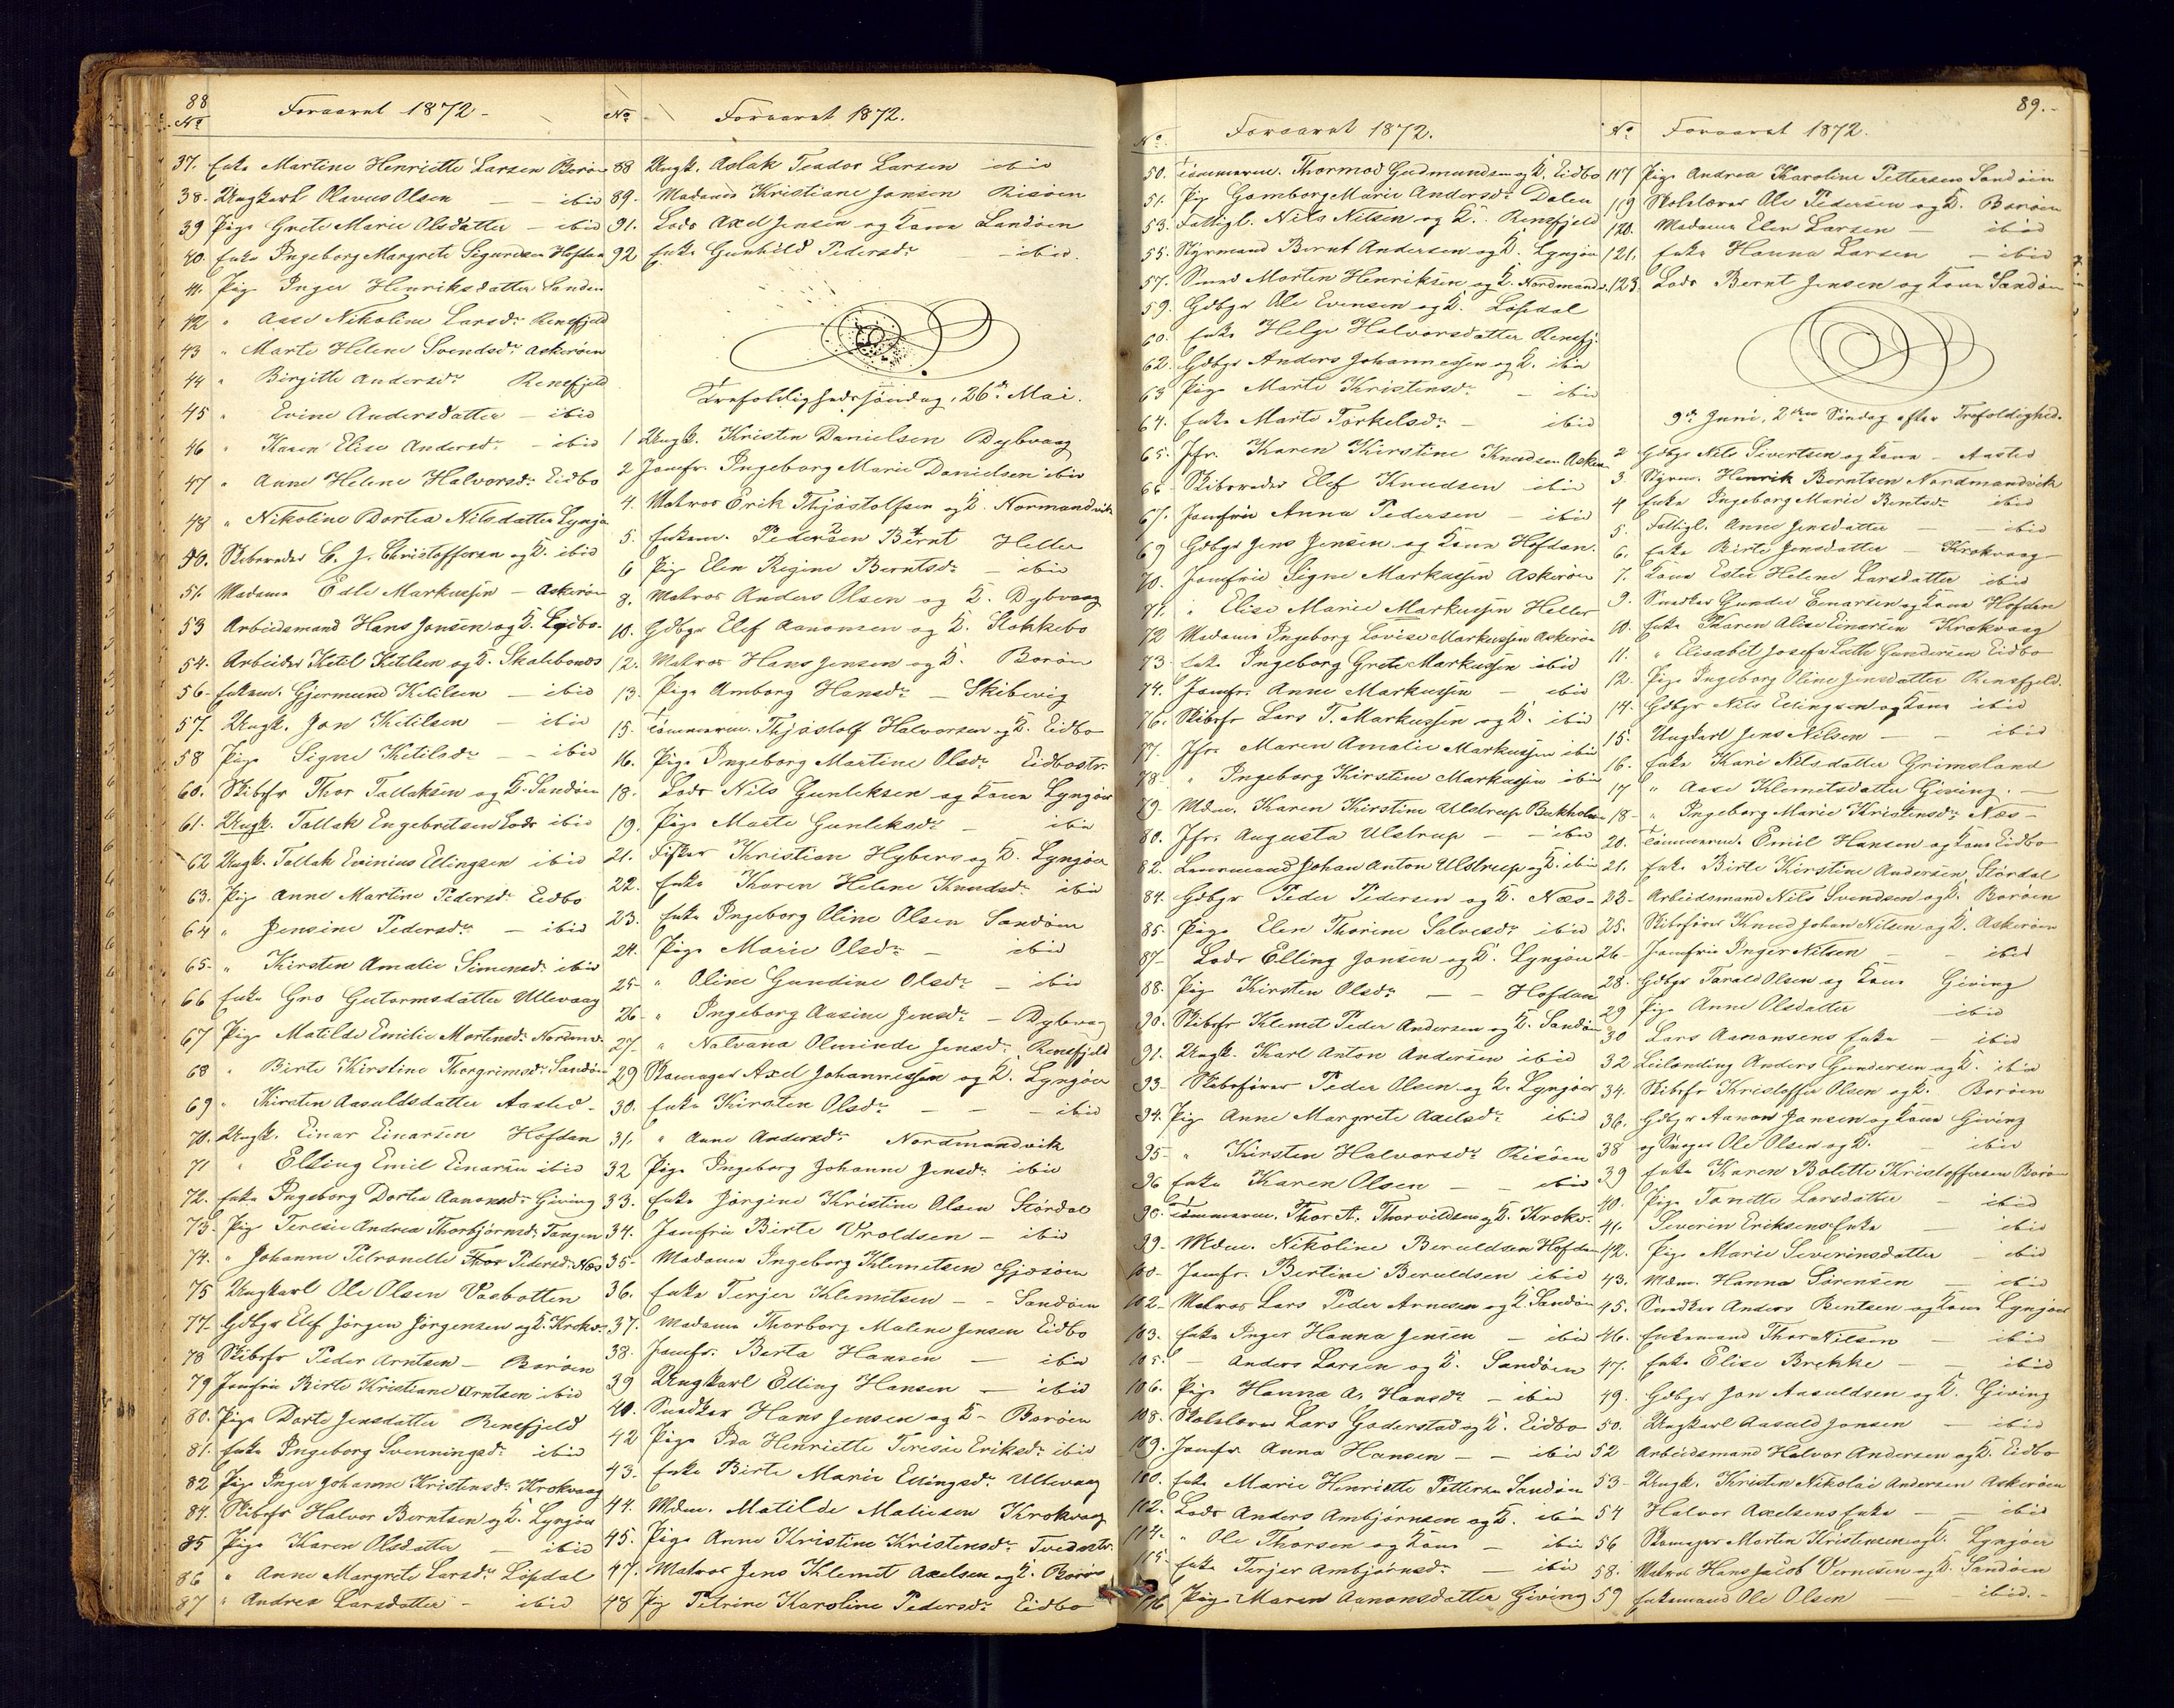 88
No
Foraaret 1872 -
37. Enke Martine Henriette Larsen Borøen
38. Ungkarl Olavus Olsen — ibid
39 Pige Grete Marie Olsdatter — ibid
40. Enke Ingeborg Margrete Sigurdsen Hofdan
41. Pig Inger Henriksdatter Sanden
42 " Aase Nikoline Larsdr Rensfjeld
43 " Marte Helene Svendsdr Askerøen
44 " Birgitte Andersdr Rensfjeld
45 " Evine Andersdatter — ibid
46 " Karen Elise Andersdr — ibid
47 " Anne Helene Halvorsdr Eidbo
48 " Nikoline Dortea Nilsdatter Lyngør
50. Skibsreder C. J. Christoffersen og K. ibid
51 Madame Edle Markussen — Askerøen
53 Arbeidsmand Hans Jonsen og K. Eidbo
54. Arbeider Ketil Ketilsen og K. Skalsbonæs
56 - Enkem. Gjermund Ketilsen — ibid
57. Ungk. Jon Ketilsen — ibid
58 Pige Signe Ketilsdr — ibid
60. Skibsfr Thor Tallaksen og K. Sandøen
61. Ungk. Tallak Engebretsen Lods ibid
62 Ungk. Tallak Evinius Ellingsen ibid
63. Pig Anne Martine Pedersdr Eidbo
64 " Jensine Pedersdr — ibid
65 - " Kirsten Amalie Simonsdr ibid
66 Enke Gro Gutormsdatter Ullevaag
67 Pige Matilde Emilie Mortensdr Nordmv.
68 " Birte Kirstine Thorgrimsdr Sandøen
69 " Kirsten Aasuldsdatter Aasted -
70. Ungk. Einar Einarsen Hofdan
71 " Elling Emil Einarsen ibid
72. Enke Ingeborg Dortea Aanonsdr Giving
73 - Pig Teresie Andrea Thorbjørnsdr Tangen
74. " Johanne Petronelle Pedersdr Næs
75 Ungkarl Ole Olsen Vasbotten
77. Gdbgr Elef Jørgen Jørgensen og K. Krokv.
78 Skibsfr Peder Arntsen — Borøen
79 Jomfru Birte Kristiane Arntsen ibid
80. Pige Dorte Jensdatter Rensfjeld
81. Enke Ingeborg Svenningsdr ibid
82 Pig Inger Johanne Kristensdr Krokvaag
84. Skibsfr Halvor Berntsen og K. Lyngøer
85 Pige Karen Olsdatter — ibid
86 " Anne Margrete Larsdr Løpdal
87 " Andrea Larsdatter - ibid
No -
Foraaret 1872.
88 Ungk. Aslak Teodor Larsen ibid
89. Madame Kristiane Jonsen Risøen
91. Lods Axel Jensen og Kone Sandøen
92 Enke Gunhild Pedersdr — ibid.
Trefoldighedssøndag, 26de Mai.
1 Ungk. Kristen Danielsen Dybvaag
2 Jomfr. Ingeborg Marie Danielsen ibid
4. Matros Erik Thjøstolfsen og K. Normandvik
5. Enkem. Pedersen Bernt Heller
6 Pig Elen Regine Berntsdr — ibid
8. Matros Anders Olsen og K. Dybvaag
10. Gdbgr Elef Aanonsen og K. Stokkebo
12. Matros Hans Jensen og K. Borøen
13. Pige Amborg Hansdr — Skibevig
15. Tømmerm. Thjøstolf Halvorsen og K. Eidbo
16. Pige Ingeborg Martine Olsdr Eidbostr.
18. Lods Nils Gunleksen og Kone Lyngøer
19. Pige Marte Gunleksdr — ibid
21. Fisker Kristian Hybers og K. Lyngøer
22. Enke Karen Helene Knudsdr ibid
23. Enke Ingeborg Oline Olsen Sandøen
24. Pige Marie Olsdr — ibid
25 - " Oline Gundine Olsdr — ibid
26 - " Ingeborg Aasine Jensdr — Dybvaag
27 - " Nalvana Olminde Jensdr Rensfjeld
29 Skomager Axel Johannessen og K. Lyngøer
30. Enke Kirsten Olsdr — — ibid
31. " Anne Andersdr Nordmandvik
32 Pige Ingeborg Johanne Jensdr ibid
33. Enke Jørgine Kristine Olsen Størdal
34. Jomfru Birte Vroldsen — ibid
35 - Madame Ingeborg Klemetsen Gjæsøen
36. Enke Terjer Klemetsen — Sandøen
37. Madame Thorborg Malene Jensen Eidbo
38. Jomfr. Berta Hansen — ibid
39 Ungkarl Elling Hansen — ibid
40. Snedker Hans Jensen og K - Borøen
42 Pige Ida Henriette Teresie Eriksdr ibid
43. Enke Birte Marie Ellingsdr Ullevaag
44. Mdm. Matilde Matiesen Krokvaag
45. Pige Anne Kristine Kristensdr Tvedestr.
47. Matros Jens Klemet Axelsen og K. Borøen
48 Pig Petrine Karoline Pedersdr Eidbo
No.
Foraaret 1872.
50. Tømmerm. Thormod Gudmundsen og K. Eidbo
51. Pig Gomborg Marie Andersdr Dalen
53. Fattigl. Nils Nilsen og K. Rensfjeld
55. Styrmand Bernt Andersen og K. Lyngøer
57. Smed Morten Henriksen og K. Nordmandv.
59. Gdbgr Ole Evensen og K. Løpdal
60. Enke Helge Halvorsdatter Rensfj.
62. Gdbgr Anders Johannessen og K. ibid
63 Pige Marte Kristensdr — ibid
64. Enke Marte Torkelsdr — ibid
65. Jfr. Karen Kirstine Knudsen Asker.
66 - Skibsreder Elef Knudsen ibid
67. Jomfru Anna Pedersen — ibid
69 Gdbgr Jens Jensen og Kone Hofdan.
70. Jomfrue Signe Markussen Askerøen
71. " Elise Marie Markussen Heller
72 Madame Ingeborg Lovise Markussen Askerøen
73. Enke Ingeborg Grete Markussen ibid
74. Jomfr. Anne Markussen — ibid
76. Skibsfr Lars T. Markussen og K. ibid
77. Jfr. Maren Amalie Markussen ibid
78. " Ingeborg Kirstine Markussen ibid
79. Mdm. Karen Kirstine Ulstrup Bukholm
80. Jfr. Augusta Ulstrup — — ibid
82. Lensmand Johan Anton Ulstrup og K. ibid
84. Gdbgr Peder Pedersen og K. Næs -
85. Pige Elen Thorine Salvesdr ibid
87 - Lods Elling Jonsen og K. Lyngøer
88. Pig Kirsten Olsdr — — Hofdan
90. Skibsfr Klemet Peder Andersen og K. Sandøen
91. Ungk. Karl Anton Andersen ibid
93 - Skibsfører Peder Olsen og K. Lyngøer
94. Pig Anne Margrete Axelsdr ibid
95 - " Kirsten Halvorsdr Risøen
96 Enke Karen Olsen — — ibid
98. Tømmerm. Thor A. Thorvildsen og K. Krokv.
99 - Mdm. Nikoline Beruldsen Hofdan
100 - Jomfr. Bertine Beruldsen ibid
102 - Matros Lars Peder Arnesen og K. Sandøen
103. Enke Inger Hanna Jensen — ibid
105. — Anders Larsen og K. Sandøen
106. Pige Hanna A. Hansdr — ibid
108. Skolelærer Lars Goderstad og K. Eidbo
109. Jomfr. Anna Hansen — — ibid
110. Enke Marie Henriette Pettersen Sandøen
112. Lods Anders Ambjørnsen og K. ibid
114. " Ole Thorsen og Kone — ibid
115. Enke Terjer Ambjørnsdr — ibid
116 Pige Maren Aanonsdatter Giving
89.-
No
Foraaret 1872.
117 Pige Andrea Karoline Pettersen Sandøen
119 Skolelærer Ole Pedersen og K. Borøen
120. Madame Elen Larsen — ibid
121. Enke Hanna Larsen — ibid
123. Lods Bernt Jensen og Kone Sandøen
9de Juni, 2den Søndag efter Trefoldighed.
2 Gdbgr Nils Sivertsen og Kone - Aasted
3. Styrm. Henrik Berntsen Nordmandvik
4 Enke Ingeborg Marie Berntsdr ibid
5. Fattigl. Anne Jensdatter — — ibid
6. Enke Birte Jonsdatter — Krokvaag
7. Kone Ester Helene Larsdatter ibid
9. Snedker Gunder Einarsen og Kone Hofdan
10. Enke Karen Alise Einarsen Krokvaag
11. " Elisabet Josefa Lutte Gundersen Eidbo
12. Pige Ingeborg Oline Jensdatter Rensfjeld.
14. Gdbgr Nils Ellingsen og Kone ibid
15. Ungkarl Jens Nilsen — — ibid
16. Enke Kari Nilsdatter Grimsland
17 " Aase Klemetsdatter Giving. —
18 - " Ingeborg Marie Kristensdr Næs —
20. Tømmerm. Emil Hansen og Kone Eidbo
21. Enke Birte Kirstine Andersen, Størdal
23 - Arbeidsmand Nils Svendsen og K. Borøen
25. Skibsfører Knud Johan Nilsen og K. Askerøen
26 - Jomfrue Inger Nilsen — — ibid
28. Gdbgr Tarald Olsen og Kone Giving
29 Pige Anne Olsdatter ibid
30 Lars Aanonsens Enke — ibid
32 Leilænding Anders Gundersen og K. ibid
34. Skibsfr Kristoffer Olsen og K. Borøen
36. Gdbgr Aanon Jansen og Kone Giving
38 og Svoger Ole Olsen og K. — ibid
39 Enke Karen Bolette Kristoffersen Borøen
40. Pige Tonette Larsdatter — ibid
41. Severin Eriksens Enke — ibid
42. Pige Marie Severinsdatter — ibid
43. Mdm. Hanna Sørensen — ibid
45. Snedker Anders Bentsen og Kone Lyngøer
46. Enkemand Thor Nilsen — ibid
47. Enke Elise Brekke — — ibid
49. Gdbgr Jon Aasuldsen og K. Giving
50. Ungkarl Aasuld Jonsen — ibid
52 Arbeidsmand Halvor Andersen og K. Eidbo
53 - Ungk. Kristen Nikolai Andersen Askerøen
54 Halvor Axelsens Enke — — ibid
56 Skomager Morten Kristensen og K. Lyngøer
58. Matros Hans Jacob Vernesen og K. Sandøen
59 Enkemand Ole Olsen — — ibid. -